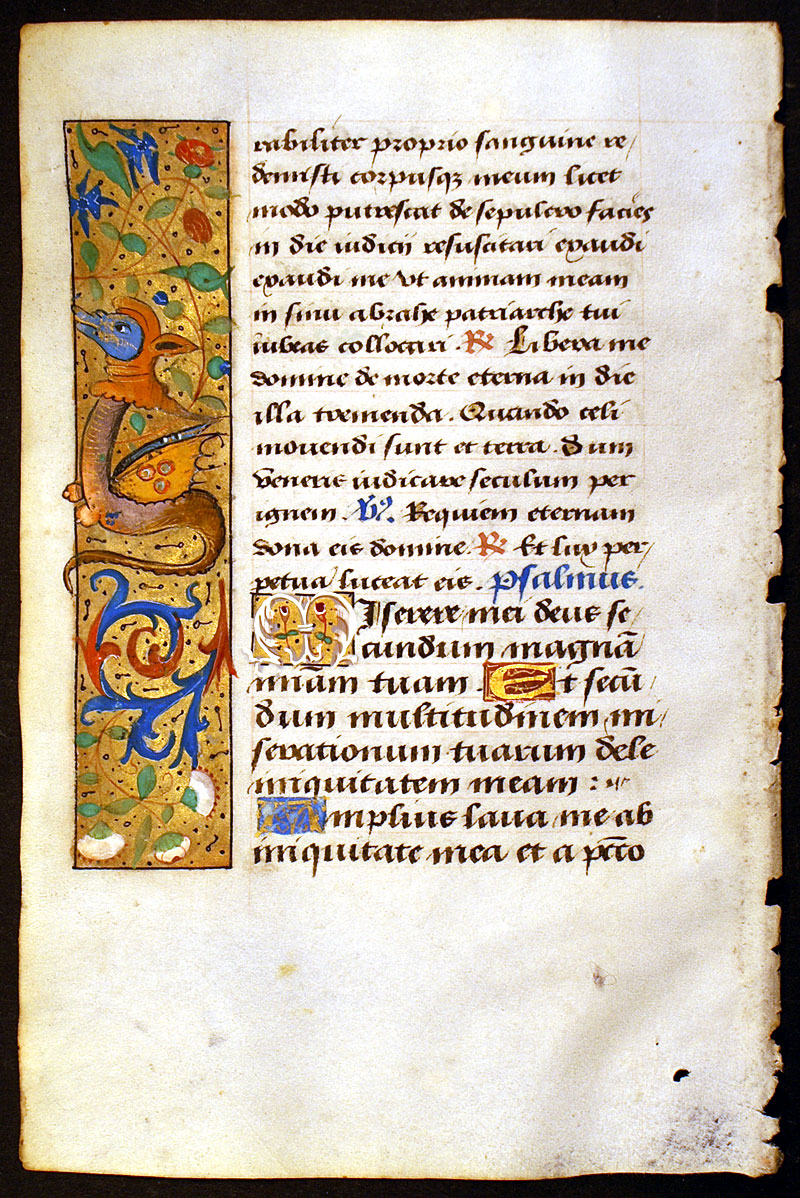 rabiliter proprio sanguine re/
demisti corpusqʒ meum licet
modo putrescat de sepulcro facies
in die iudicii resuscitari exaudi
exaudi me vt animam meam
in sinu abrahe patriarche tui
iubeas collocari. R̸ Libera me
domine de morte eterna in die
illa tremenda. Quando celi
mouendi sunt et terra. Dum
veneris iudicare seculum per
ignem. V̸. Requiem eternam
dona eis domine. R̸ Et lux per/
petua luceat eis. psalmus.
Miserere mei deus se/
cundum magnā
miām tuam. Et secū/
dum multitudinem mi/
serationum tuarum dele
iniquitatem meam :
Amplius laua me ab
iniquitate mea et a pctō